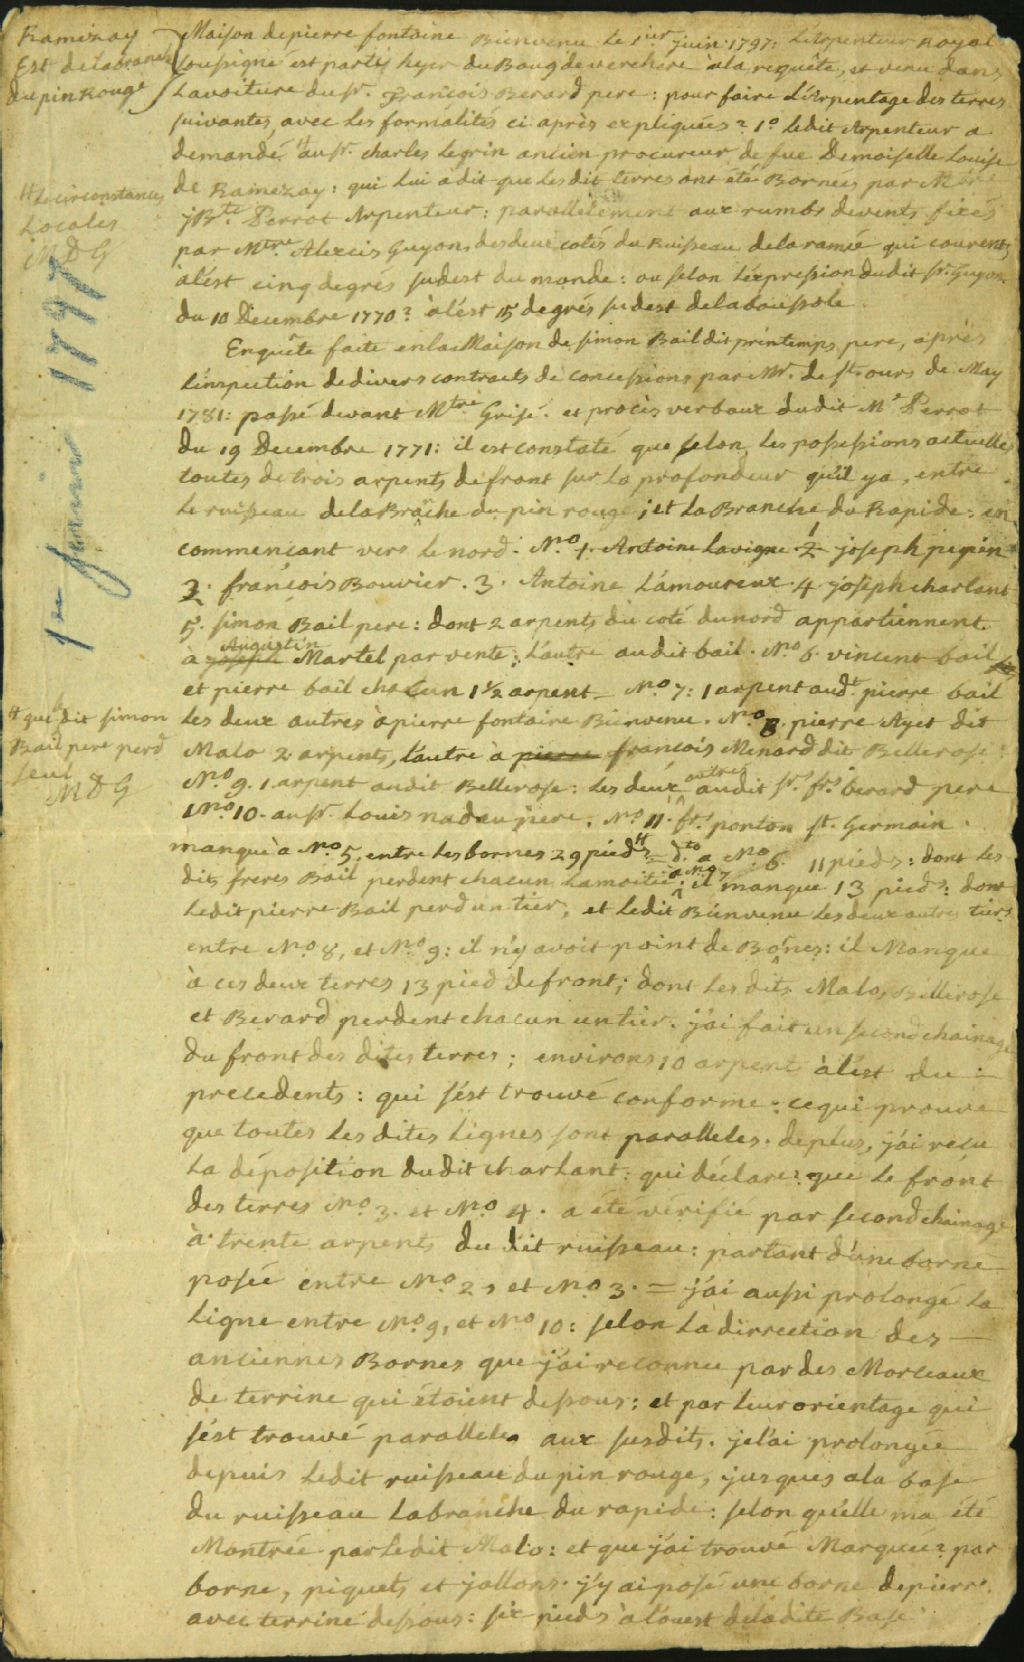 Ramezay
Est de la branche
du pin Rouge
Maison de pierre fontaine Bienvenu le 1ier juin 1797: L'Arpenteur Royal
soussigné est partis hyer du Bourg de verchere à la requête, et venu dans
La voiture du sr. François Berard pere: pour faire L'Arpentage des terres
suivantes, avec les formalités ci après expliquées? 1o ledit Arpenteur a
demandé # au sr. charles Legrin ancien procureur de fue Demoiselle Louise
de Ramezay: qui lui a dit que lesdit terres ont été Bornées par Mtre
jBte Perrot Arpenteur: parallelement aux rumbs de vents fixés
par Mtre Alexis Guyon, des deux cotés du Ruisseau de la ramée qui courent
à l'ést cinq degrés sudest du monde: ou selon l'éxpression dudit sr. Guyon.
du 10 Decembre 1770? à l'ést 15 degrés sudest de la boussole.
# Le circonstances
Locales
MDG
1er Juin 1797
Enquête faite en la Maison de simon Bail dit printemps pere, après
L'inspection de divers contracts de concessions par Mr. de st. ours de May
1781: passé devant Mtre Grisé. et procès verbaux dudit Mr Perrot
du 19 Decembre 1771: il est constaté que selon les possessions actuelles
toutes de trois arpents de front sur la profondeur qu'il ya, entre
Le ruisseau de la Branche du pin rouge; et La Branche du Rapide: en
commencant vers le nord: No 1. Antoine Lavigne 1/2 joseph pepin
2. françois Bouvier. 3. Antoine L'amoureux. 4 joseph charlant
5. simon Bail pere: dont 2 arpents du coté du nord appartiennent.
à joseph Augustin Martel par vente: L'autre audit bail. No 6. vincent bail
et pierre bail chacun 1 1/2 arpent _ No 7: 1 arpent audt. pierre bail
les deux autres à pierre fontaine Bienvenu. No 8. pierre Ayet dit
Malo 2 arpents, l'autre à pierre françois Menard dit Bellerose:
No 9. 1 arpent audit Bellerose: les deux autres audit sr. frs. berard pere
No 10. au sr. Louis nadau pere. No 11. frs. ponton st. Germain.
# que dit simon
Bail pere perd
seul
MDG
manque à No 5. entre les bornes 29 pieds # = do a No 6. 11 pieds: dont les
dits freres Bail perdent chacun La moitié: a No 7 il manque 13 pieds: dont
Ledit pierre Bail perd un tier, et ledit Bienvenu les deux autres tiers
entre No 8, et No 9: il n'y avoit point de Bornes: il Manque
à ces deux terres 13 pied de front; dont les dits Malo, Bellerose
et Berard perdent chacun un tier. j'ai fait un second chainage
du front des dites terres; environs 10 arpents à l'ést du
precedents: qui s'ést trouvé conforme: ce qui prouve
que toutes les dites Lignes sont paralleles. de plus, j'ai recu
La déposition dudit charlant: qui déclare: que le front
des terres No 3. et No 4. a été vérifié par second chainage
à trente arpents du dit ruisseau: partant d'une borne
posée entre No 2, et No 3. = j'ai aussi prolongé La
Ligne entre No 9, et No 10: selon La dirrection des
anciennes Bornes que j'ai reconnu par des Morceaux
de terrine qui étoient dessous: et par leur orientage qui
s'ést trouvé parallele aux susdits. je l'ai prolongée
depuis ledit ruisseau du pin rouge, jusques a la base
du ruisseau La branche du rapide: selon qu'elle ma été
Montrée par ledit Malo: et que j'ai trouvé Marquée? par
borne, piquets et jallons. j'y ai posé une borne de pierre.
avec terrine dessous: six pieds à l'ouest de la dite Base